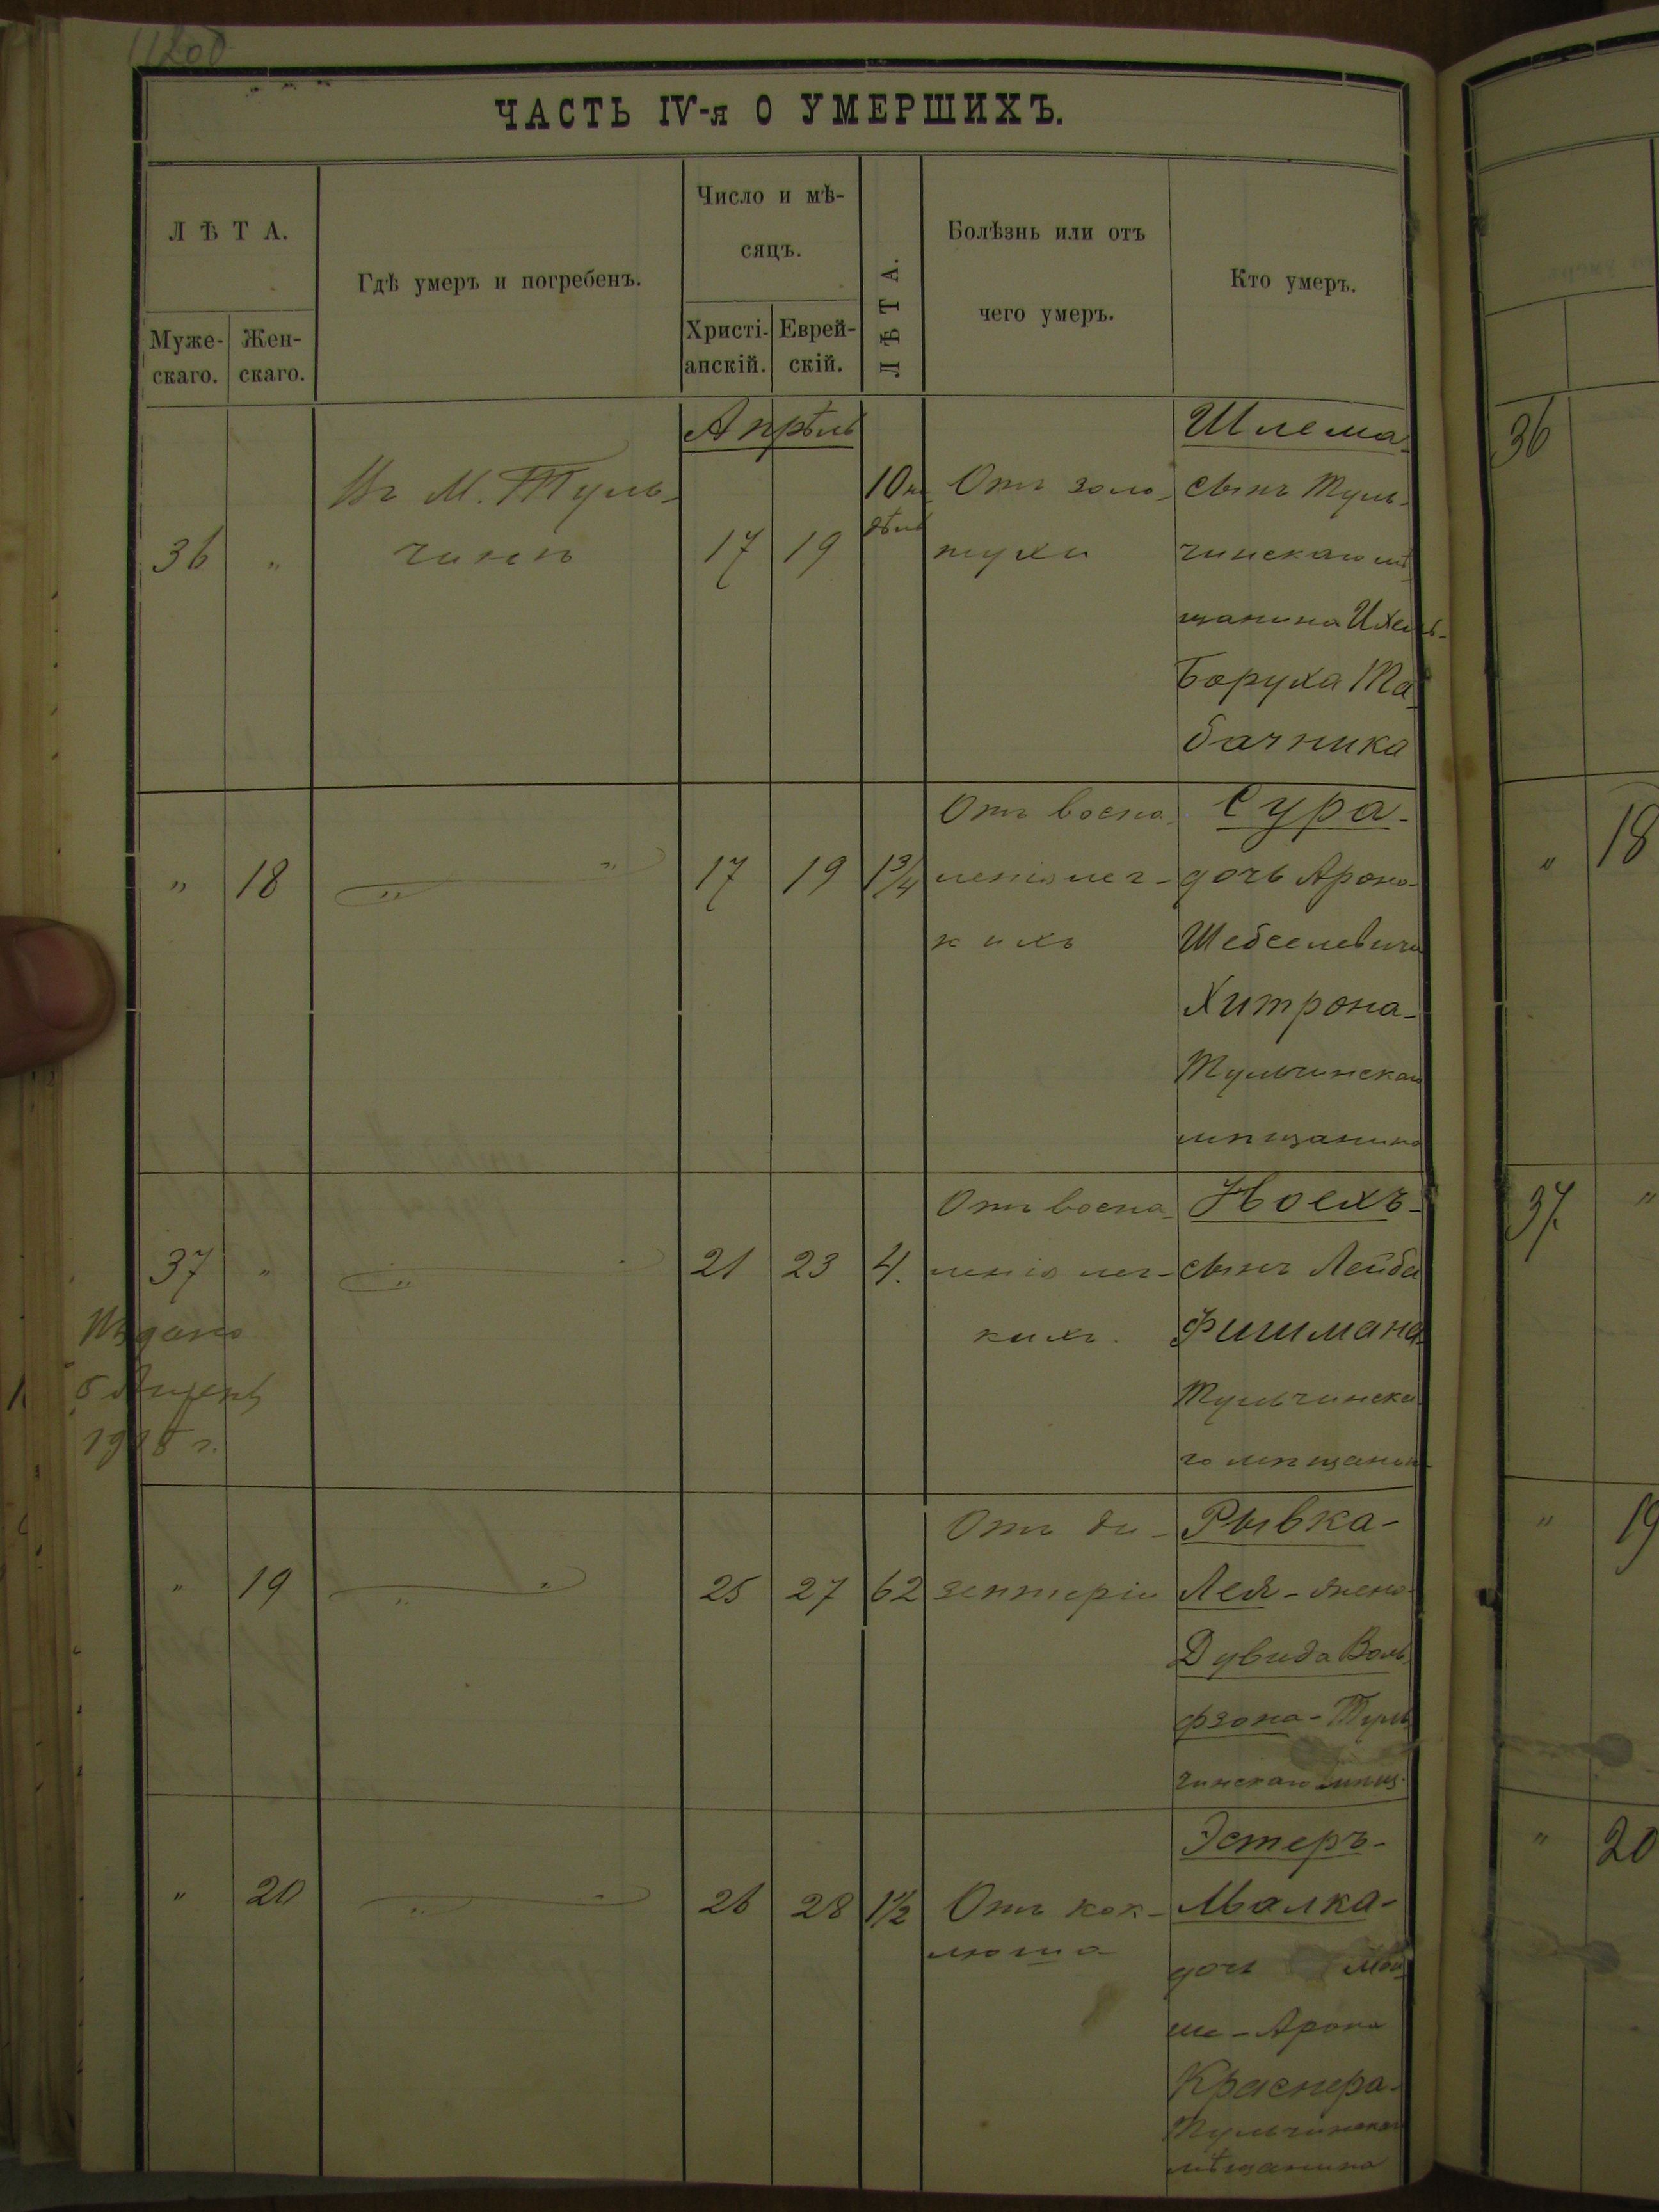 1200
ЧАСТЬ IV-я О УМЕРШИХЪ.
ЛѢТА.
Муже-
скаго.
Жен-
скаго.
Гдѣ умеръ и погребенъ.
Число и мѣ-
сяцъ.
Христі-
анскій.
Еврей-
скій.
ЛѢТА.
Болѣзнь или отъ
чего умеръ.
Кто умеръ.
Апрѣль
36 "
Въ М. Туль-
чинѣ
17 19
10 не
дѣль
Отъ золо-
тухи
Шлема
сынъ Туль-
чинскаго мѣ
щанина Ихель-
Боруха Та-
бачника
" 18 " " 17 19 1 3/4
Отъ воспа-
ленія лег-
кихъ
Сура-
дочь Арона-
Шебселевича
Хитрона-
Тульчинскаго
мѣщанина
37 " " " 21 23 4.
Отъ воспа-
ленія лег-
кихъ.
Ноехъ-
сынъ Лейба
Фишмана-
Тульчинска
го мѣщанин
1915 г.
" 19 " " 25 27 62
Отъ ди-
зентеріи
Рывка-
Лея - жена
Дувида Воль
фзона - Туль
чинскаго мѣщ.
" 20 " " 26 28 1 1/2
Отъ кок-
люша
Эстеръ-
Малка-
дочь Мой
ше - Арона
Краснера-
Тульчинскаго
мѣщанина
36
" 18
37. "
" 19
" 20